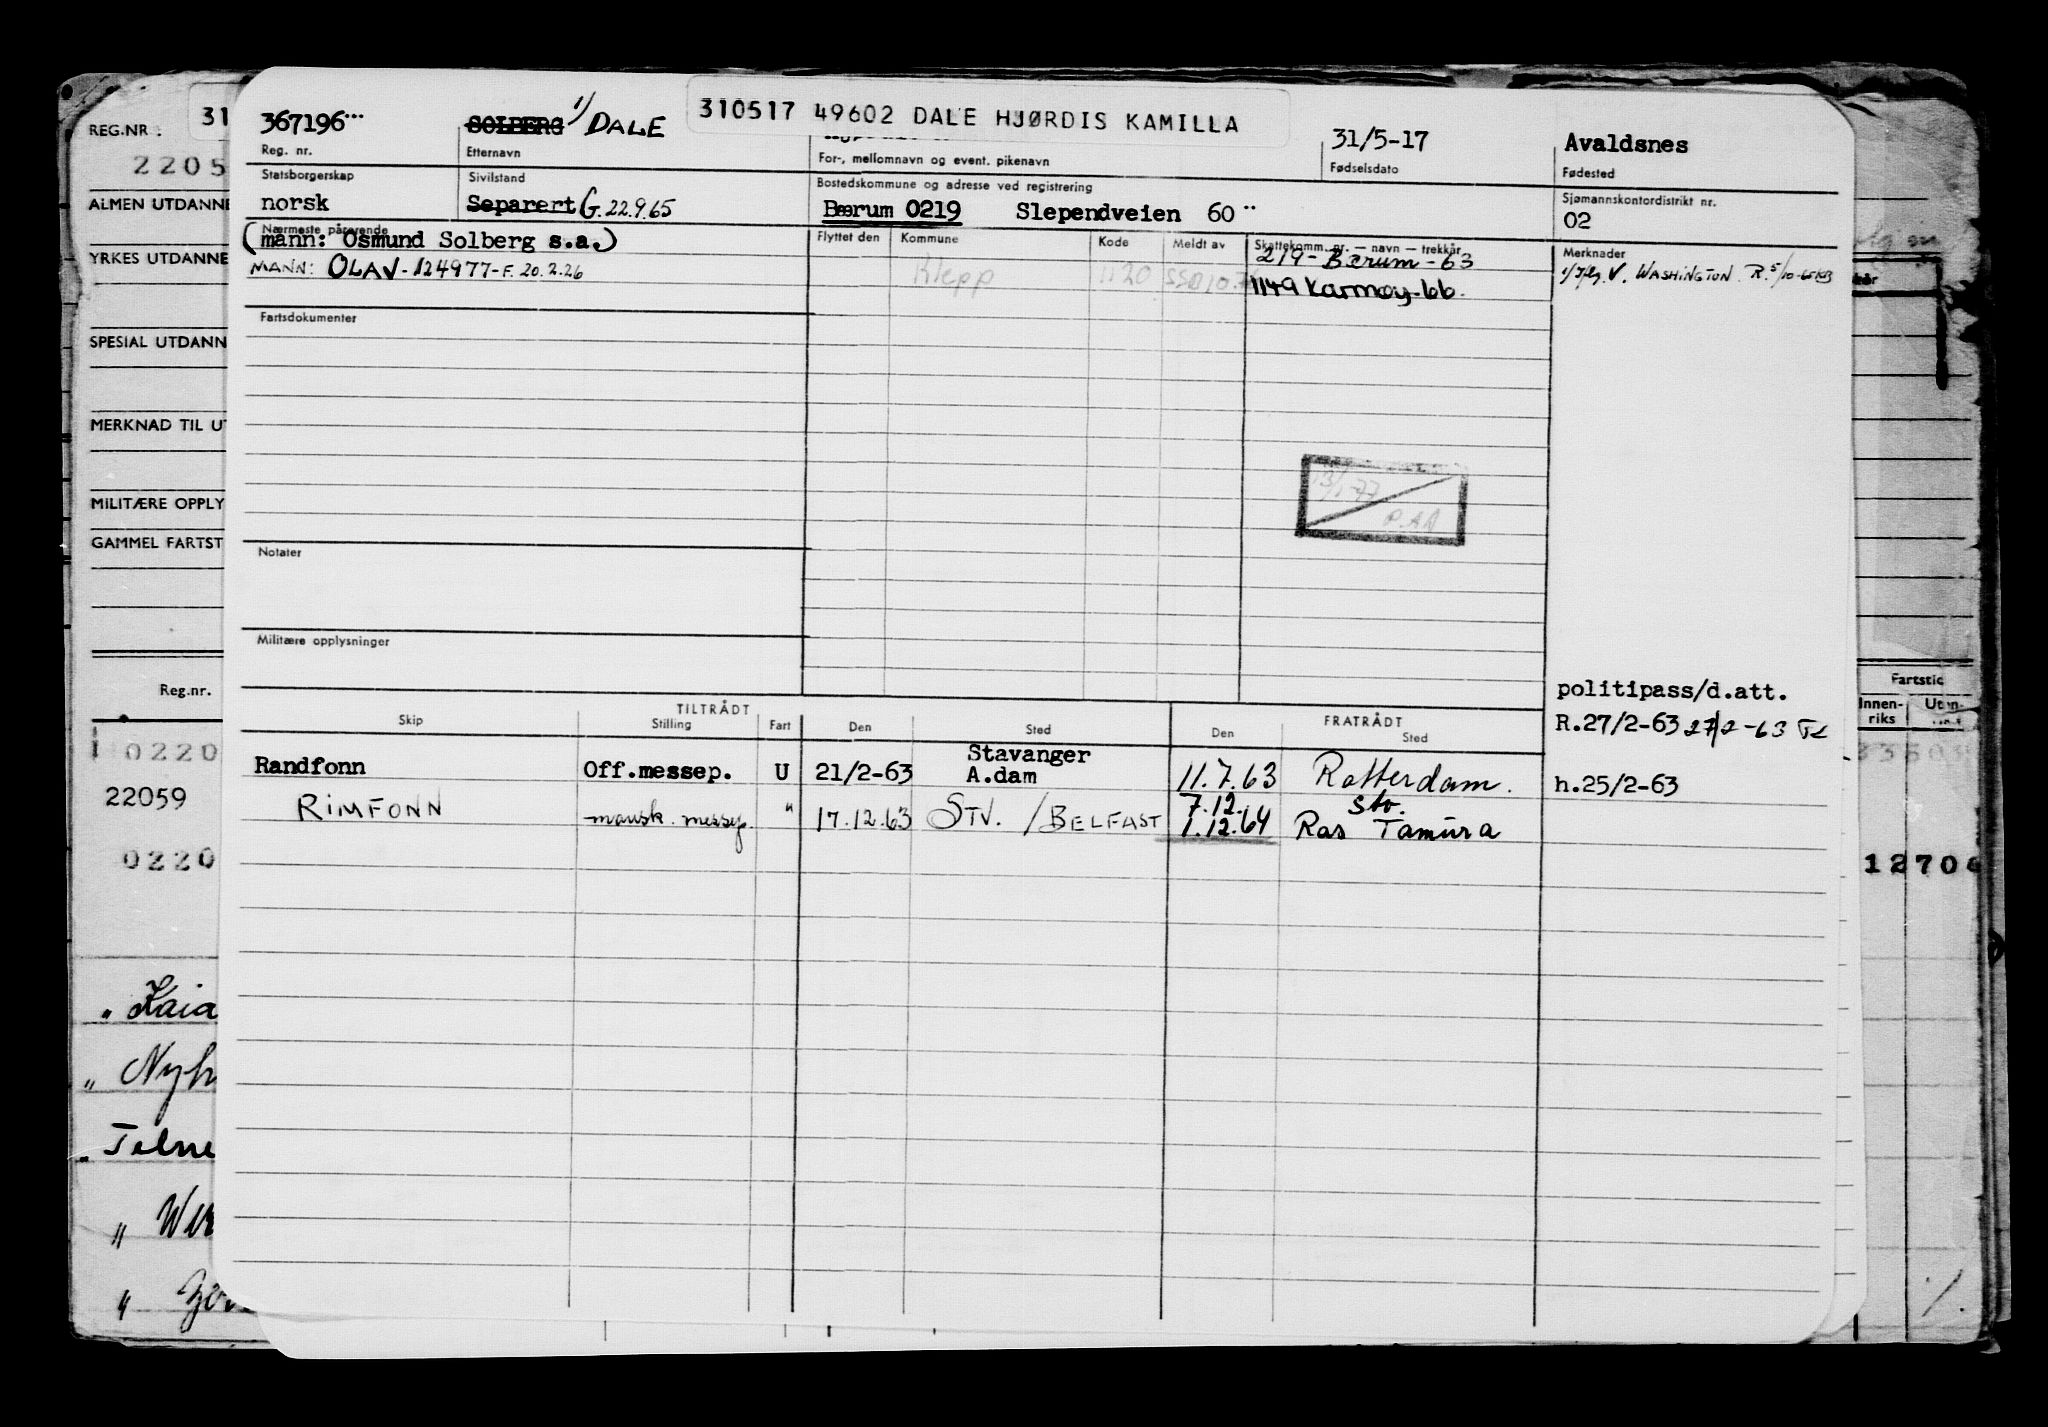 310517 49602 DALE HJØRDIS KAMILLA
367196
SOLBERG 1/ DALE
31/5-17
Avaldsnes
Reg. nr.
Etternavn
For-, mellomnavn og event. pikenavn
Fødselsdato
Fødested
Statsborgerskap
Sivilstand
Bostedskommune og adresse ved registrering
Sjømannskontordistrikt nr.
norsk
Separert G. 22.9.65
Bærum 0219 Slependveien 60
02
Nærmeste pårørende
(mann: Osmund Solberg s.a.)
MANN: OLAV - 124977 - F. 20.2.26
Flyttet den
Kommune
Kode
Meldt av
Skattekomm. nr. — navn — trekkår
Merknader
Klepp
1120
219 - Bærum - 63
1149 Karmøy - 66.
V. WASHINGTON R. 5/10-65
Fartsdokumenter
13/1-77
Notater
Militære opplysninger
politipass/d.att.
R.27/2-63 27/2-63
h.25/2-63
TILTRÅDT
FRATRÅDT
Skip
Stilling
Fart
Den
Sted
Den
Sted
Randfonn
Off.messep.
U
21/2-63
Stavanger
A.dam
11.7.63
Rotterdam.
RIMFONN
mansk. messep.
"
17.12.63
STV. / BELFAST
7.12.
1.12.64
Stv.
Ras Tamura
REG.NR.
31
2205
ALMEN UTDANNE
YRKES UTDANNE
SPESIAL UTDANN
MERKNAD TIL UT
MILITÆRE OPPLY
GAMMEL FARTST
Reg.nr.
0220
22059
0220
" Kaia
" Nyh
" Telne
Fartstid
Innen-
riks
Uten-
12706